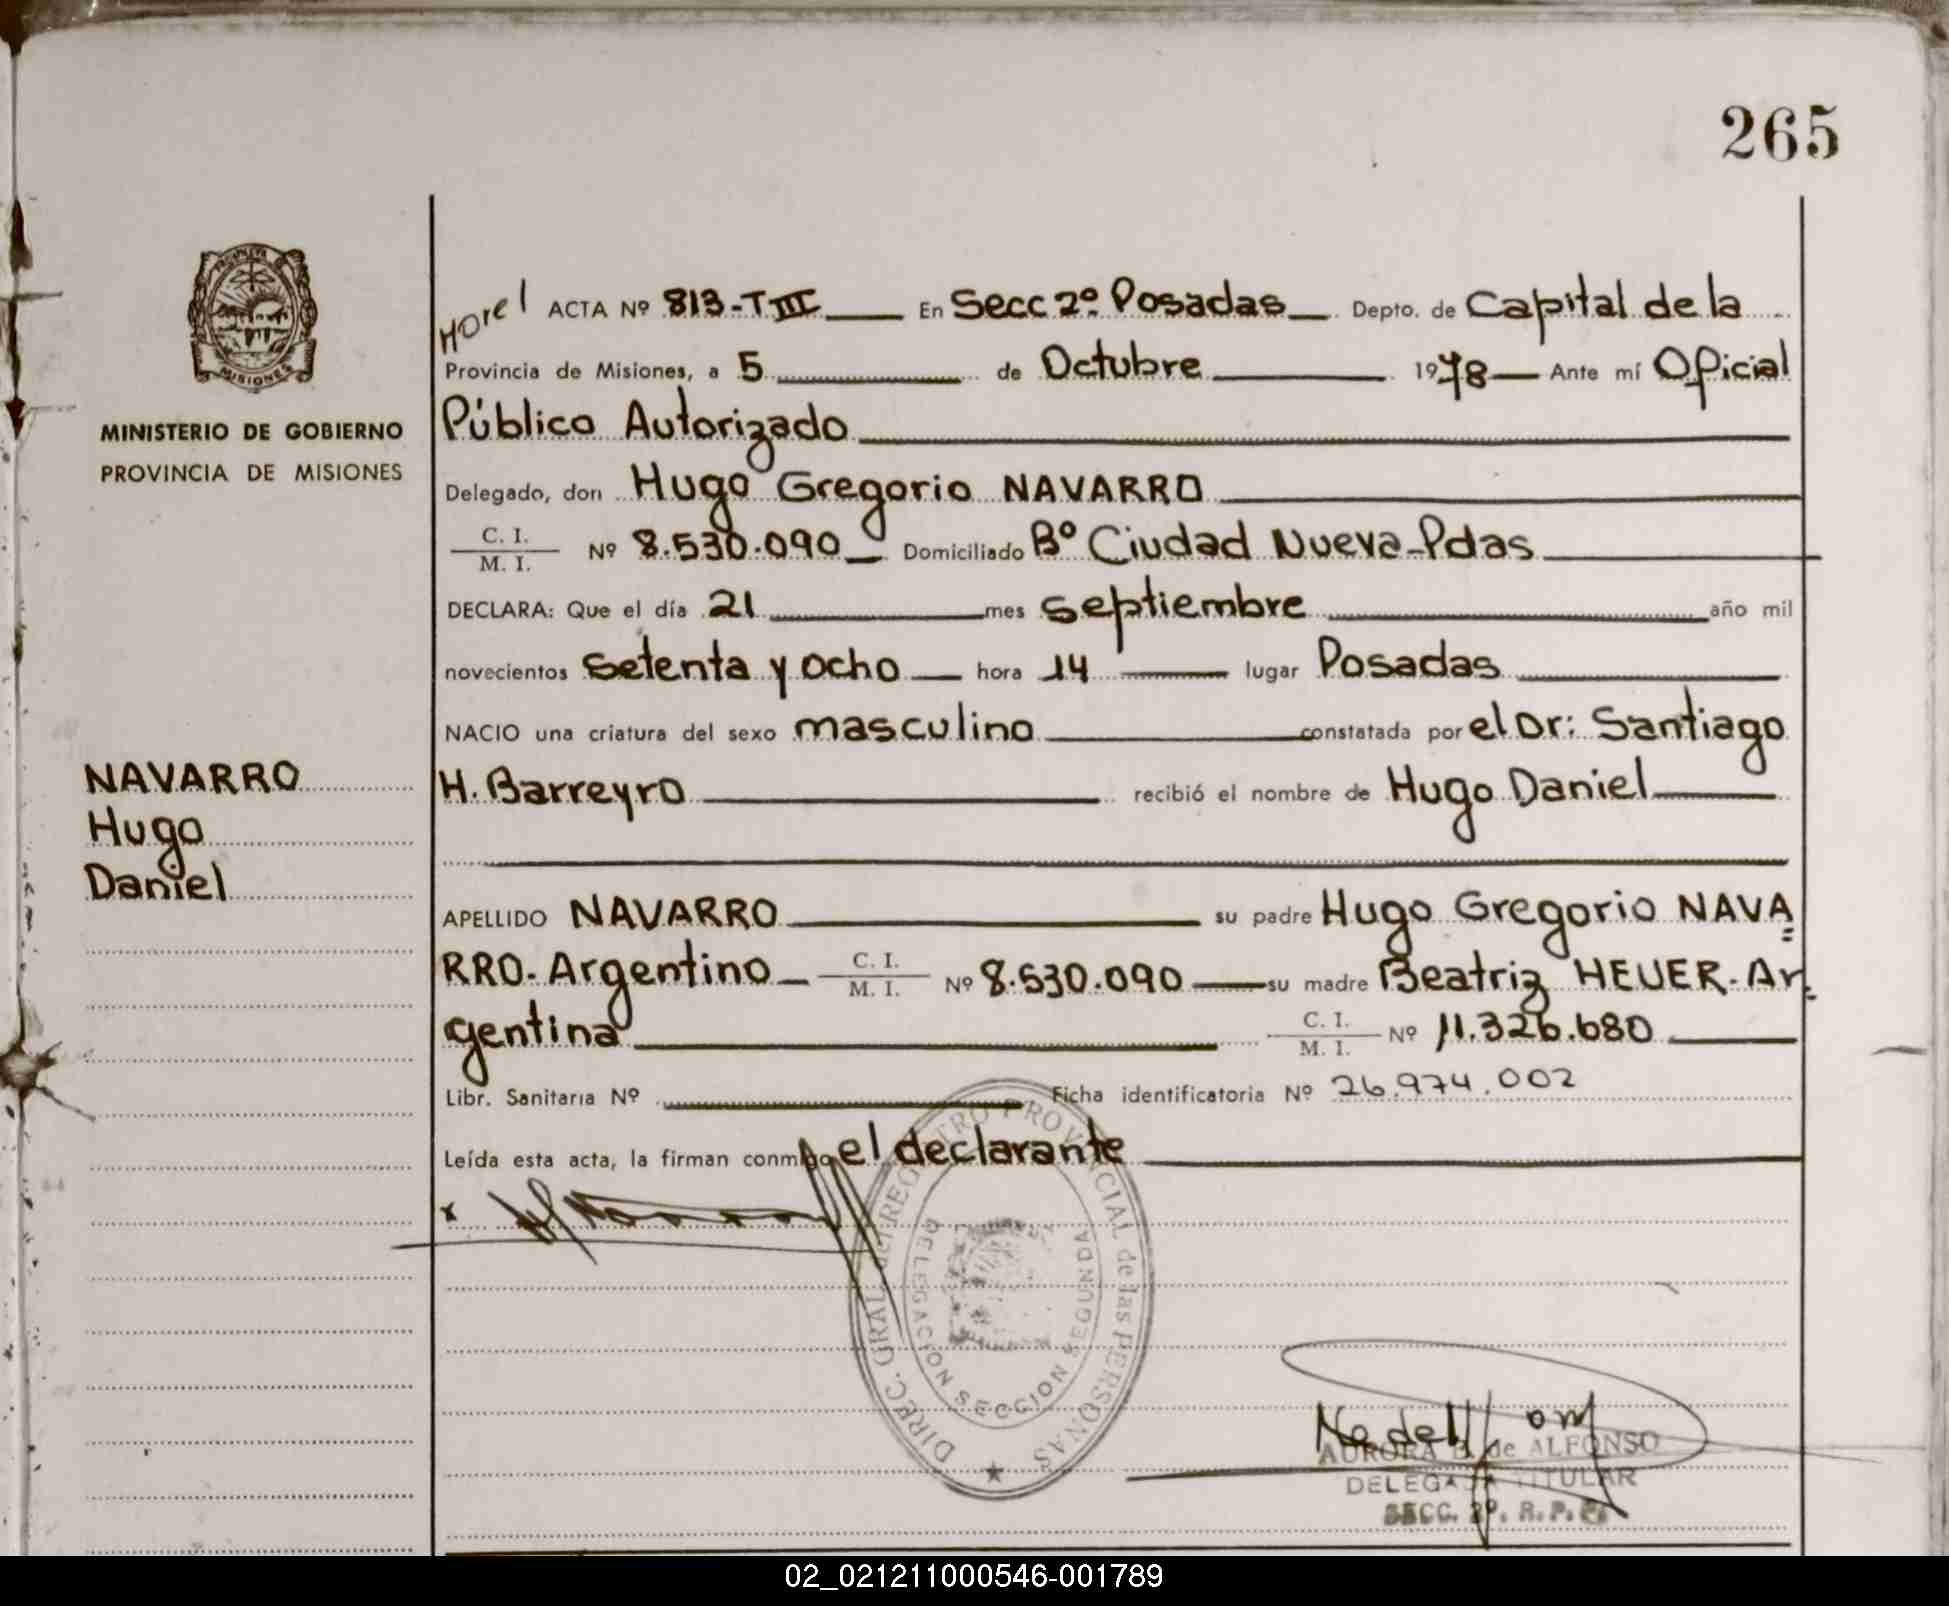 265
ACTA Nº 813-T III En Secc 2º Posadas Depto. de Capital de la
Provincia de Misiones, a 5 de Octubre 1978 Ante mí Oficial
Público Autorizado
Delegado, don Hugo Gregorio NAVARRO
C. I.
M. I. Nº 8.530.090 Domiciliado Bº Ciudad Nueva-Pdas
DECLARA: Que el día 21 mes septiembre año mil
novecientos setenta y ocho hora 14 lugar Posadas
NACIO una criatura del sexo masculino constatada por el Dr: Santiago
H. Barreyro recibió el nombre de Hugo Daniel
APELLIDO NAVARRO su padre Hugo Gregorio NAVA=
RRO. Argentino C. I. M. I. Nº 8.530.090 su madre Beatriz HEUER. Ar=
gentina C. I. M. I. Nº 11.326.680
Libr. Sanitaria Nº Ficha identificatoria Nº 26.974.002
Leída esta acta, la firman conmigo el declarante
x
MISIONES
MINISTERIO DE GOBIERNO
PROVINCIA DE MISIONES
NAVARRO
Hugo
Daniel
DIREC. GRAL. del REGISTRO PROVINCIAL de las PERSONAS
DELEGACION SECCION SEGUNDA
AURORA B. de ALFONSO
DELEGADA TITULAR
SECC. 2º. R. P. P.
02_021211000546-001789